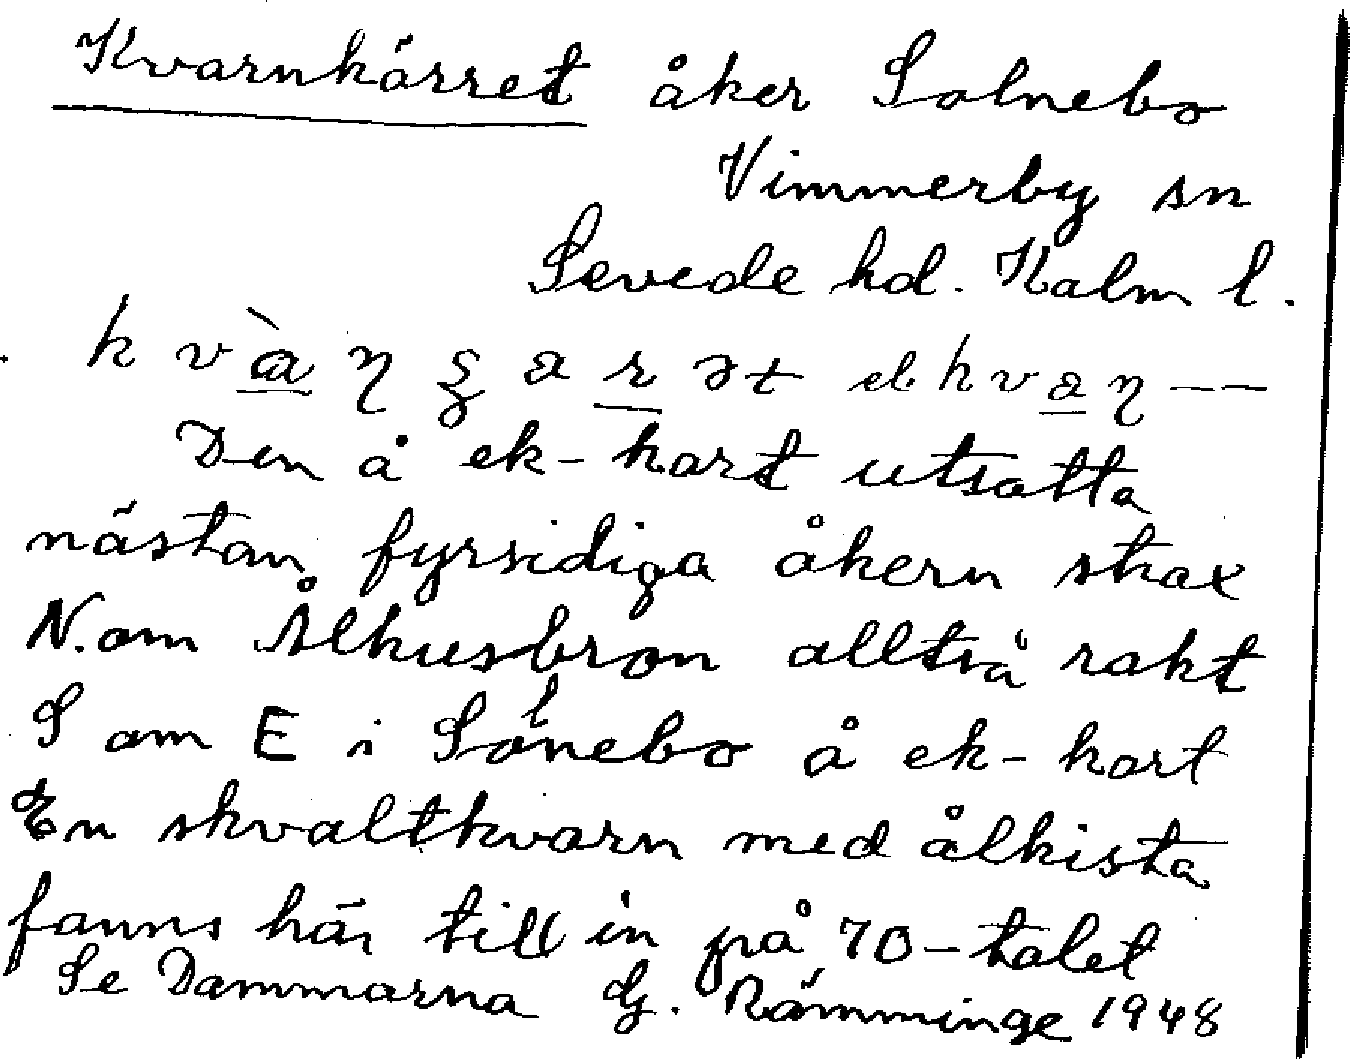 Kvarnkärret åker Solnebo
Vimmerby sn
Sevede hd. Kalm l.
el
Den å ek-kart utsatta
nästan fyrsidiga åkern strax
N. om Ålkusbron alltså rakt
S om E i Solnebo å ek-kart
En skvaltkvarn med ålkista
fanns här till in på 70-talet
Se Dammarna G. Rämminge 1948